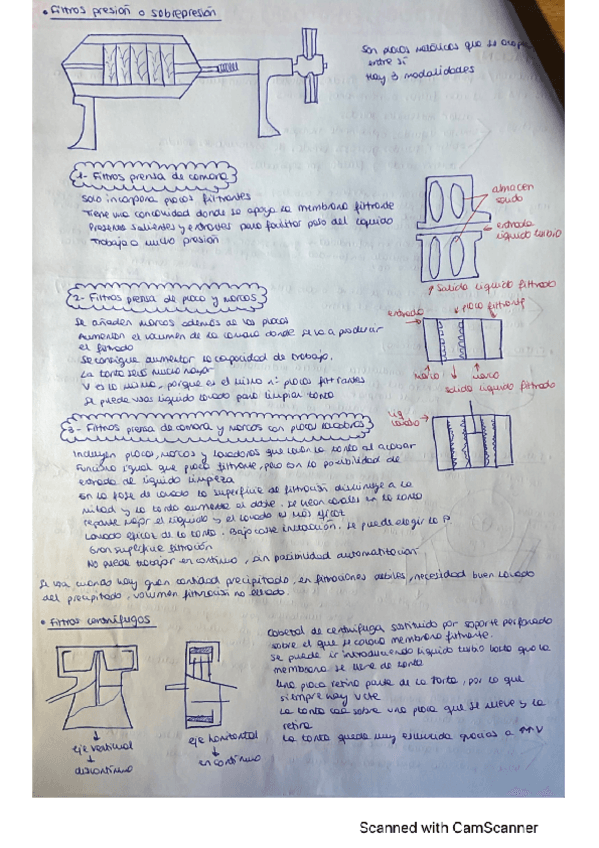 • Filtros presión o sobrepresión
Son placas metálicas que se acoplan
entre sí
Hay 3 modalidades
1- Filtros prensa de cámara
Solo incorpora placas filtrantes
Tiene una concavidad donde se apoya la membrana filtrante
Presenta salientes y entrantes para facilitar paso del líquido
Trabaja a mucha presión
almacén
sólido
entrada
líquido turbio
↑ Salida líquido filtrado
2- Filtros prensa de placa y marcos
Se añaden marcos además de las placas
Aumentan el volumen de la cámara donde se va a producir
el filtrado
Se consigue aumentar la capacidad de trabajo.
La torta será mucho mayor
V es la misma, porque es el mismo nº placas filtrantes
Se puede usar líquido lavado para limpiar torta
entrada
placa filtrante
marco
marco
salida líquido filtrado
3- Filtros prensa de cámara y marcos con placas lavadoras
Incluyen placas, marcos y lavadoras que lavan la torta al acabar
Funciona igual que placa filtrante, pero con la posibilidad de
entrada de líquido limpieza
En la fase de lavado la superficie de filtración disminuye a la
mitad y la torta aumenta al doble. Se crean canales en la torta
reparte mejor el líquido y el lavado es más eficaz
Lavado eficaz de la torta. Bajo coste instalación. Se puede elegir la P
Gran superficie filtración
No puede trabajar en continuo, sin posibilidad automatización.
líq
lavado
Se usa cuando hay gran cantidad precipitado, en filtraciones difíciles, necesidad buen lavado
del precipitado, volumen filtración no elevado.
• Filtros centrífugos
Cabezal de centrífuga, sustituido por soporte perforado
sobre el que se coloca membrana filtrante.
Se puede ir introduciendo líquido turbio hasta que la
membrana se llene de torta
Una placa retira parte de la torta, por lo que
siempre hay V cte
La torta cae sobre una placa que se mueve y la
retira
La torta queda muy escurrida gracias a
eje vertical
↓
discontinuo
eje horizontal
↓
en continuo
Scanned with CamScanner